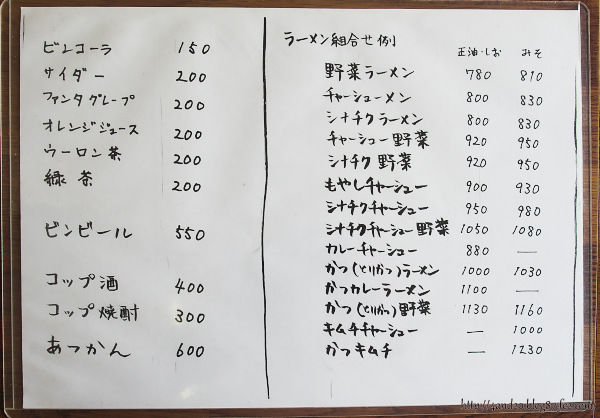 ビンコーラ 150
サイダー 200
ファンタグレープ 200
オレンジジュース 200
ウーロン茶 200
緑茶 200
ビンビール 550
コップ酒 400
コップ焼酎 300
あつかん 600
ラーメン組合せ例 正油・しお みそ
野菜ラーメン 780 810
チャーシューメン 800 830
シナチクラーメン 800 830
チャーシュー野菜 920 950
シナチク野菜 920 950
もやしチャーシュー 900 930
シナチクチャーシュー 950 980
シナチクチャーシュー野菜 1050 1080
カレーチャーシュー 880 —
かつ(とりかつ)ラーメン 1000 1030
かつカレーラーメン 1100 —
かつ(とりかつ)野菜 1130 1160
キムチチャーシュー — 1000
かつキムチ 1230